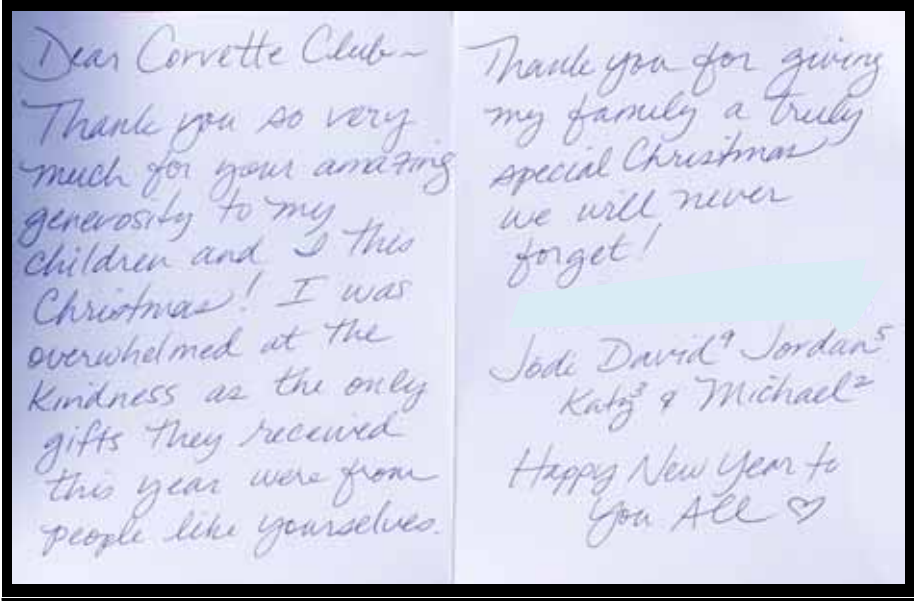 Dear Corvette Club~
Thank you so very
much for your amazing
generosity to my
children and I this
Christmas! I was
overwhelmed at the
kindness as the only
gifts they received
this year were from
people like yourselves.
Thank you for giving
my family a truly
special Christmas
we will never
forget!
Jodi David⁹ Jordan⁵
Katy³ & Michael²
Happy New Year to
You All ♡